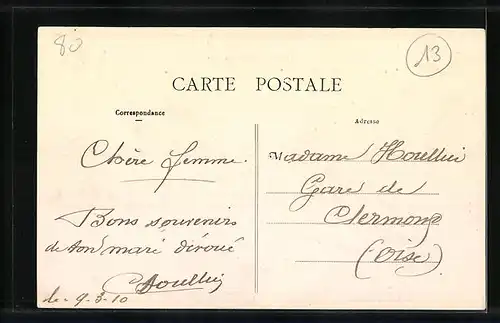 80
13
CARTE POSTALE
Correspondance
Adresse
Chère femme.
Bons souvenirs
de ton mari dévoué
Houllier
le 9-3-10
Madame Houllier
Gare de
Clermont
(Oise)